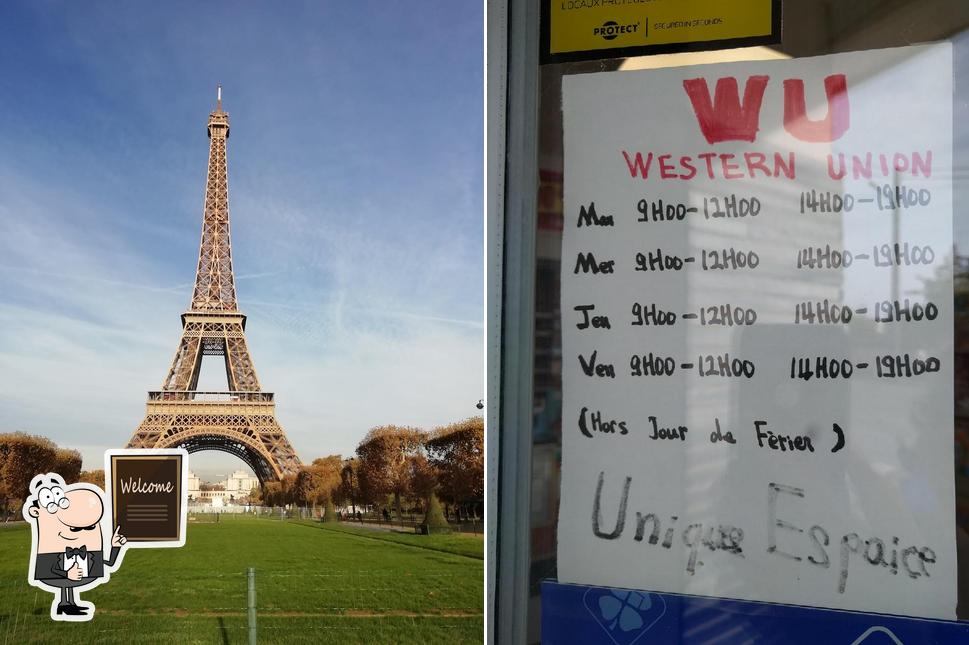 Welcome
PROTECT SECURED IN SECONDS
WU
WESTERN UNION
Mar 9H00-12H00 14H00-19H00
Mer 9H00-12H00 14H00-19H00
Jeu 9H00-12H00 14H00-19H00
Ven 9H00-12H00 14H00-19H00
(Hors Jour de Fèrier)
Unique Espaice